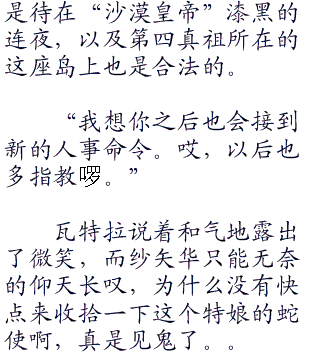 是待在“沙漠皇帝”漆黑的
连夜，以及第四真祖所在的
这座岛上也是合法的。
“我想你之后也会接到
新的人事命令。哎，以后也
多指教啰。”
瓦特拉说着和气地露出
了微笑，而纱矢华只能无奈
的仰天长叹，为什么没有快
点来收拾一下这个特娘的蛇
使啊，真是见鬼了。。